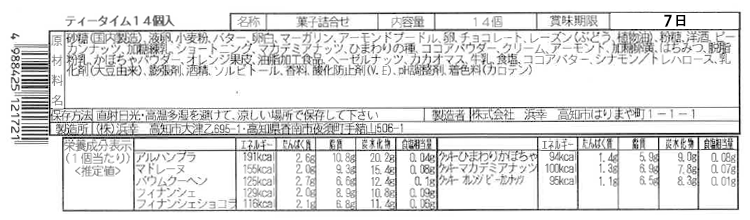 ティータイム14個入
名称 菓子詰合せ 内容量 14個 賞味期限 7日
原材料名
砂糖(国内製造)、液卵、小麦粉、バター、卵白、マーガリン、アーモンドプードル、卵、チョコレート、レーズン(ぶどう、植物油)、粉糖、洋酒、ピー
カンナッツ、加糖練乳、ショートニング、マカデミアナッツ、ひまわりの種、ココアパウダー、クリーム、アーモンド、加糖卵黄、はちみつ、脱脂
粉乳、かぼちゃパウダー、オレンジ果皮、油脂加工食品、ヘーゼルナッツ、カカオマス、牛乳、食塩、ココアバター、シナモン/トレハロース、乳
化剤(大豆由来)、膨張剤、酒精、ソルビトール、香料、酸化防止剤(V.E)、pH調整剤、着色料(カロテン)
保存方法 直射日光・高温多湿を避けて、涼しい場所で保存して下さい 製造者 株式会社 浜幸 高知市はりまや町1-1-1
製造所 (株)浜幸 高知市大津乙695-1・高知県香南市夜須町手結山506-1
栄養成分表示
(1個当たり)
<推定値>
エネルギー たんぱく質 脂質 炭水化物 食塩相当量 エネルギー たんぱく質 脂質 炭水化物 食塩相当量
アルハンブラ 191kcal 2.6g 10.8g 20.2g 0.04g クッキーひまわりかぼちゃ 94kcal 1.4g 5.9g 9.0g 0.08g
マドレーヌ 155kcal 2.0g 9.3g 15.4g 0.08g クッキーマカデミアナッツ 100kcal 1.3g 6.9g 7.8g 0.07g
バウムクーヘン 125kcal 2.7g 6.6g 12.4g 0.1g クッキー オレンジピーカンナッツ 95kcal 1.1g 6.5g 8.3g 0.01g
フィナンシェ 129kcal 2.0g 8.9g 10.8g 0.09g
フィナンシェショコラ 116kcal 2.1g 6.8g 11.4g 0.06g
4988425121721